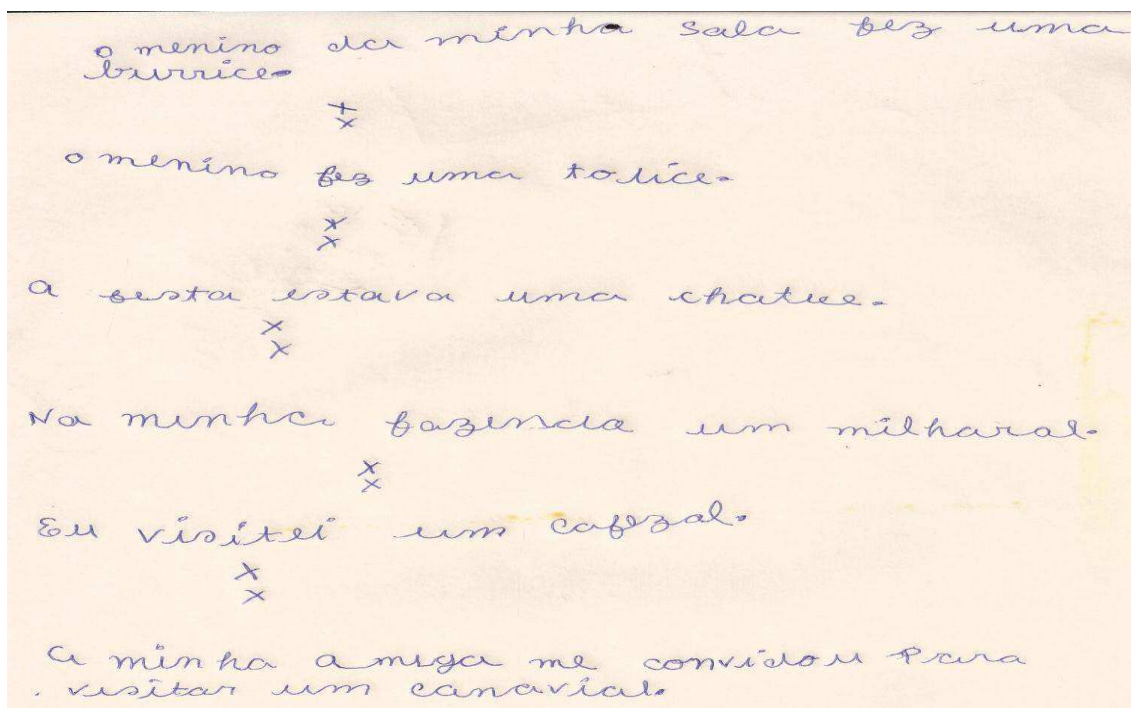 o menino da minha sala fez uma
burrice.
x
x
o menino fez uma tolice.
x
x
a festa estava uma chatice.
x
x
Na minha fazenda um milharal.
x
x
Eu visitei um cafezal.
x
x
a minha amiga me convidou para
visitar um canavial.